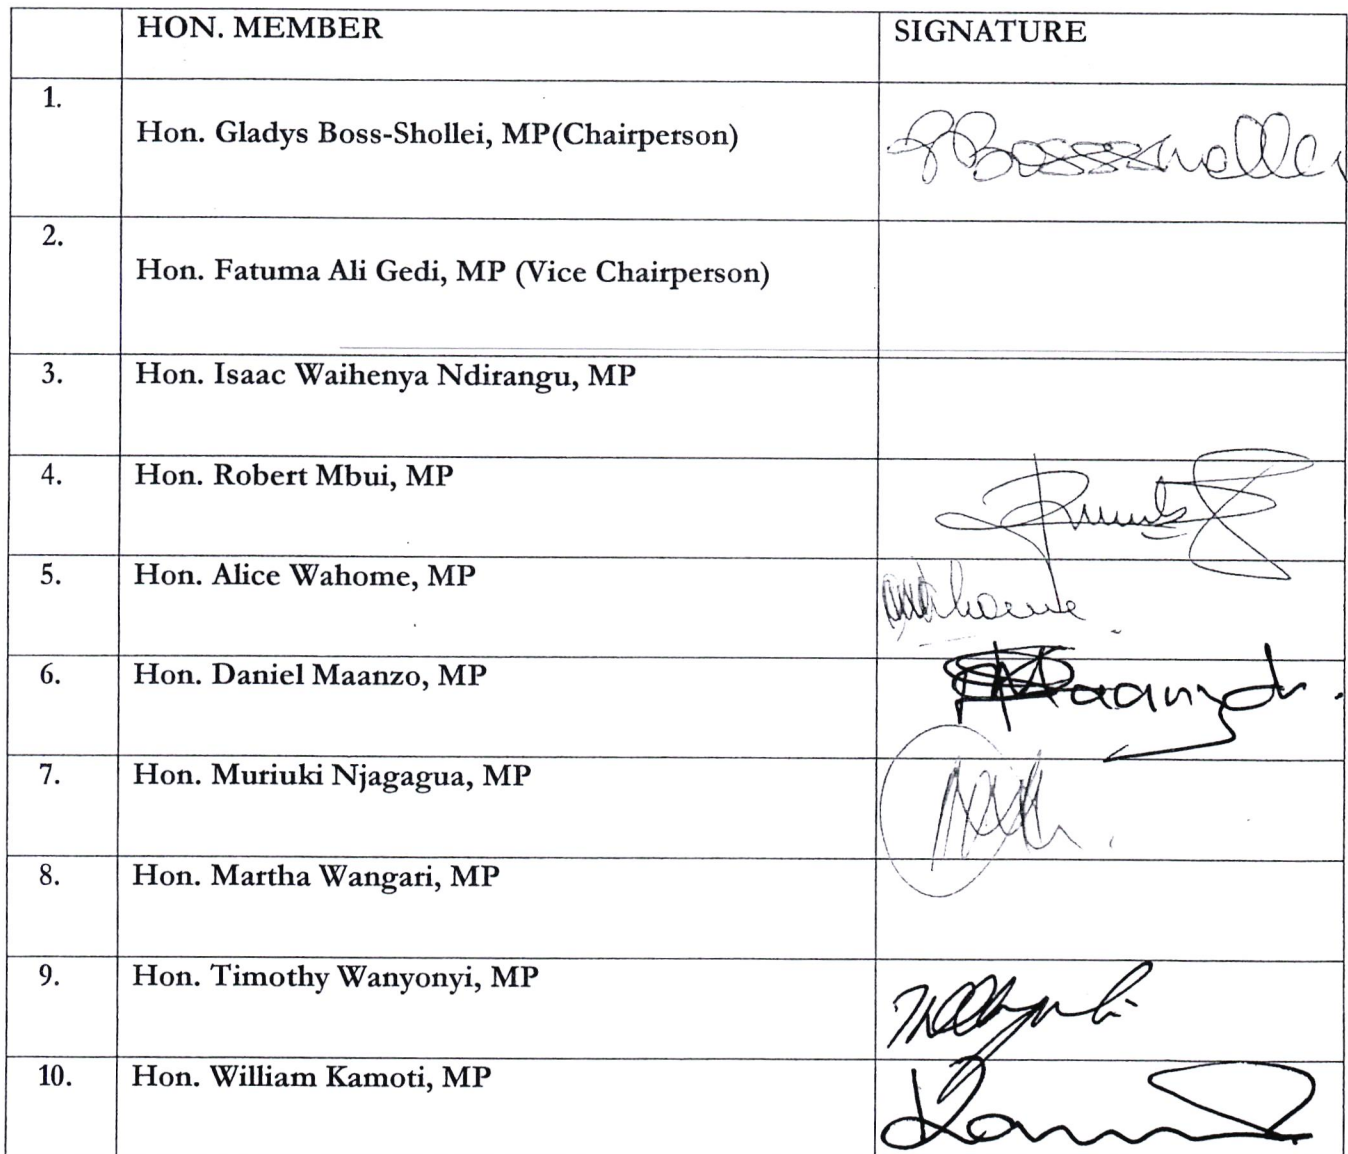 HON. MEMBER SIGNATURE
1.
Hon. Gladys Boss-Shollei, MP(Chairperson)
2.
Hon. Fatuma Ali Gedi, MP (Vice Chairperson)
3. Hon. Isaac Waihenya Ndirangu, MP
4. Hon. Robert Mbui, MP
5. Hon. Alice Wahome, MP
6. Hon. Daniel Maanzo, MP
7. Hon. Muriuki Njagagua, MP
8. Hon. Martha Wangari, MP
9. Hon. Timothy Wanyonyi, MP
10. Hon. William Kamoti, MP